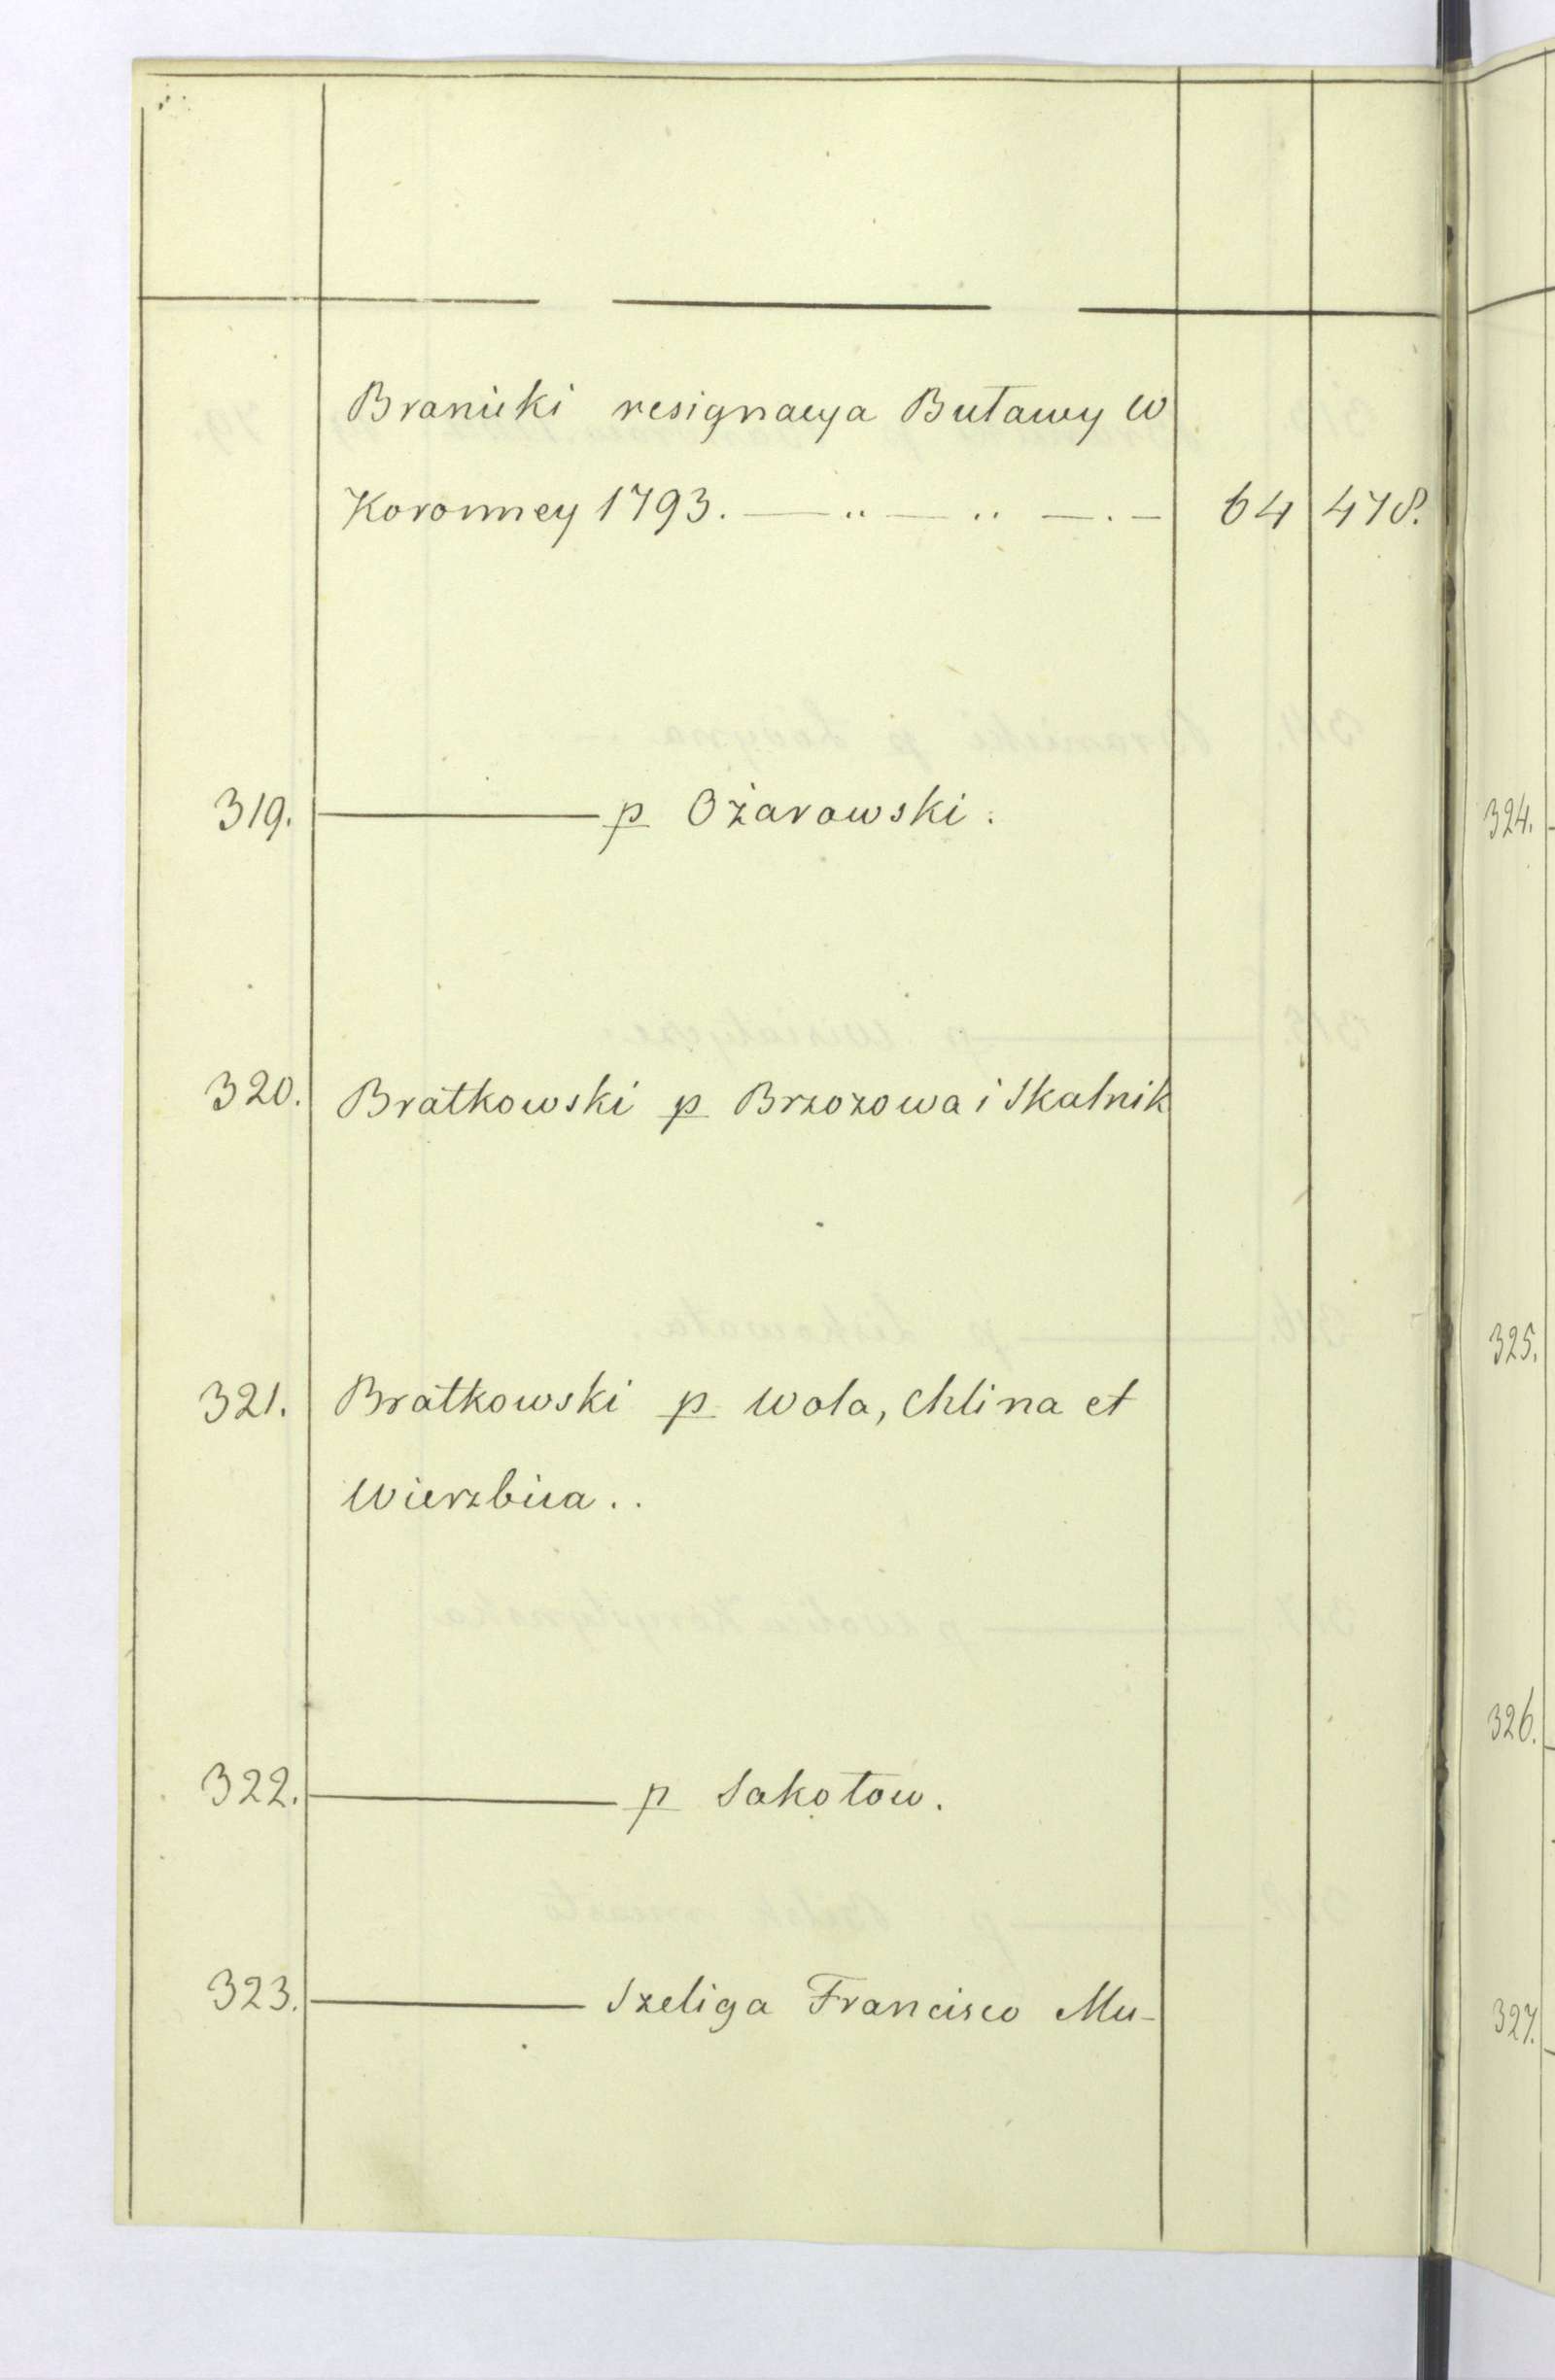 Branicki resignacya Buławy W
Koronney 1793. — „ — „ — . — 64 478.
319. ——— p Ożarowski.
320. Bratkowski p Brzozowa i Skalnik
321. Bratkowski p Wola, Chlina et
Wierzbica..
322. ——— p Sokołow.
323. ——— Szeliga Francisco Mu-
324.
325.
326.
327.